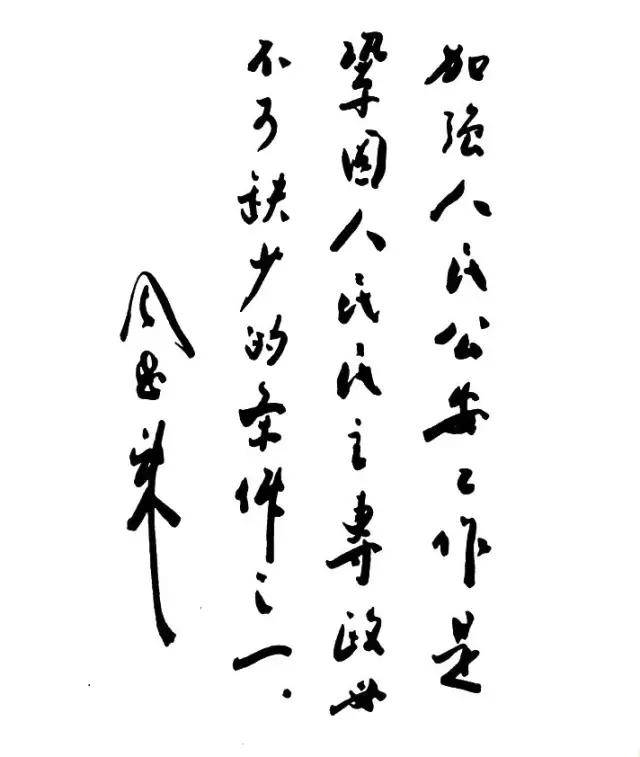 加强人民公安工作是
鞏固人民民主專政
不可缺少的条件之一.
周恩来